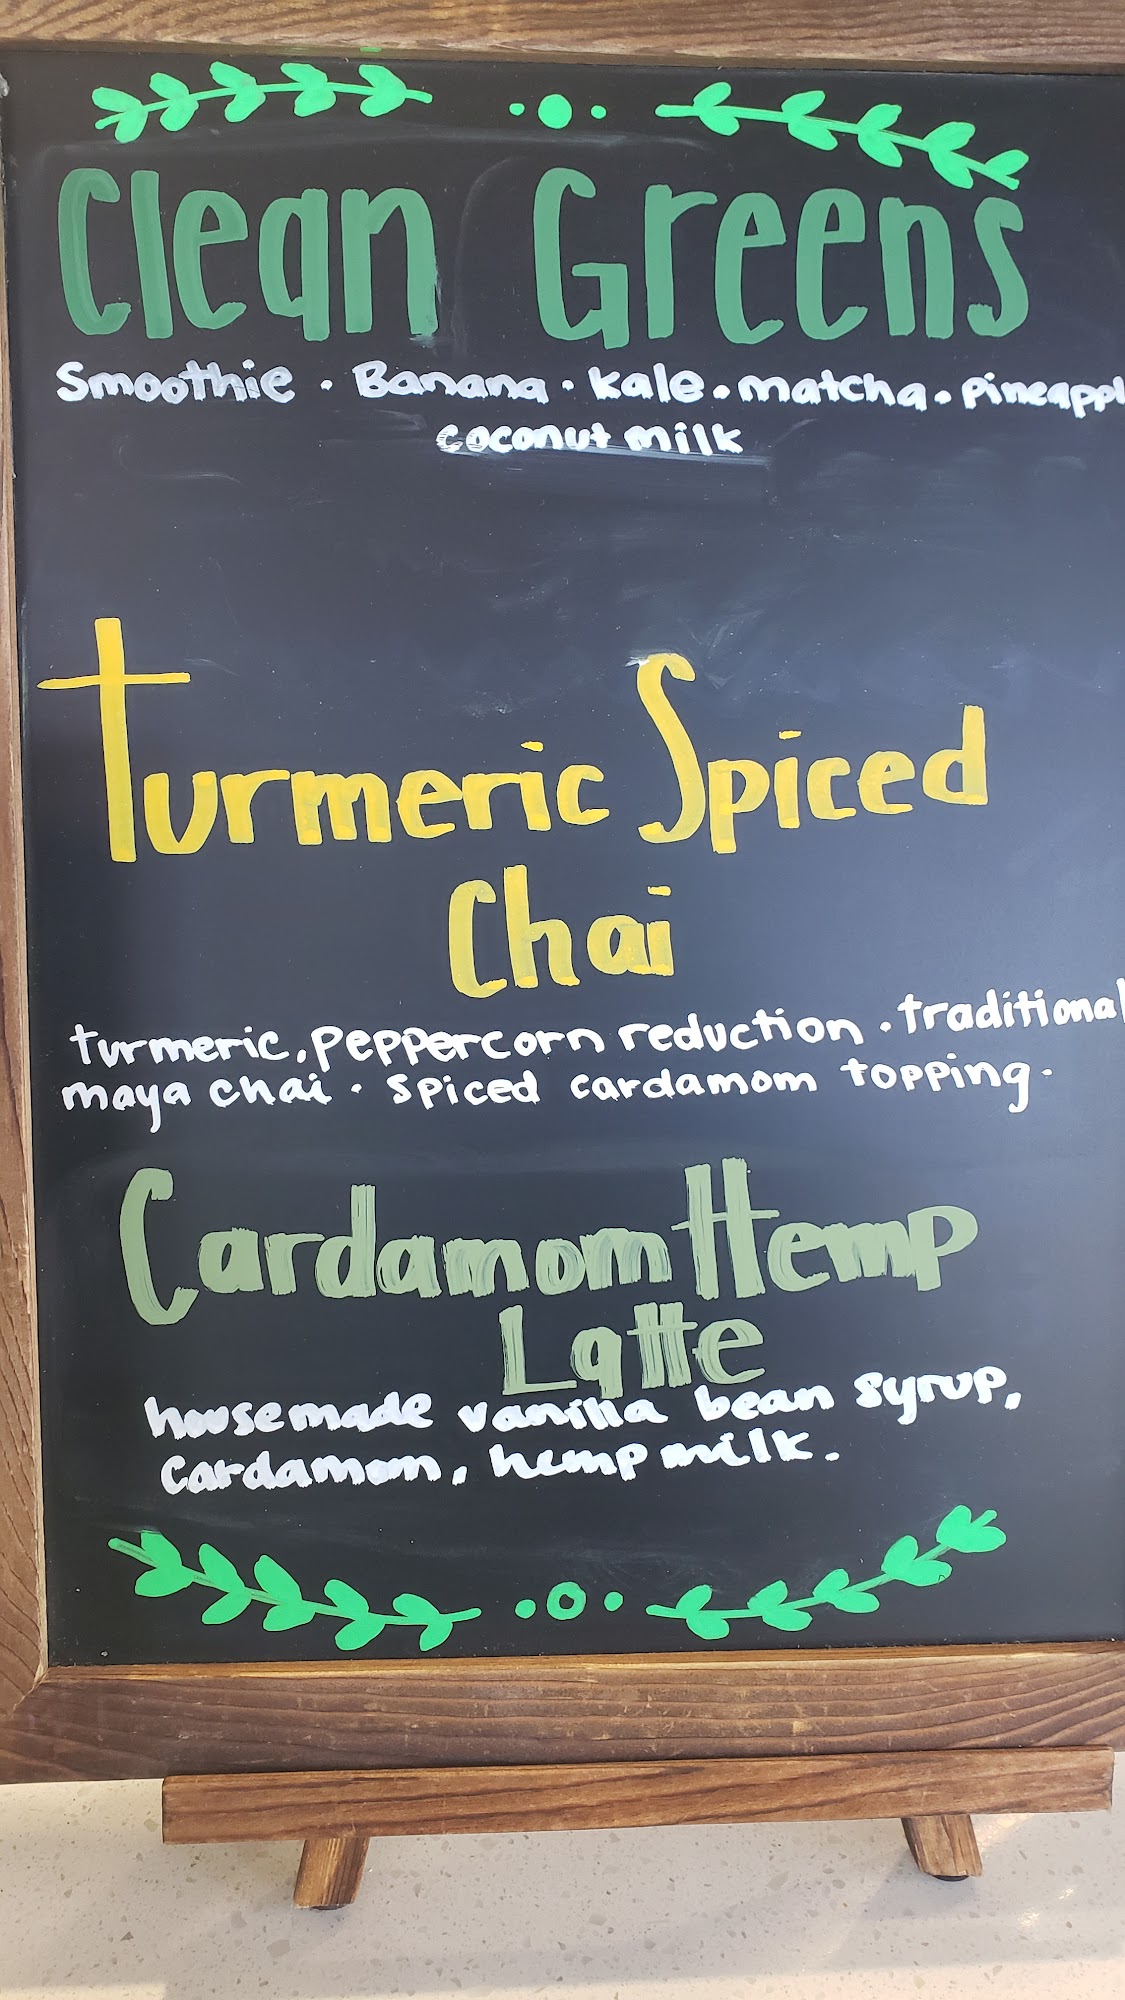 Clean Greens
Smoothie · Banana · kale · matcha · pineappl
coconut milk
Turmeric Spiced
Chai
turmeric, peppercorn reduction · traditional
maya chai · spiced cardamom topping·
Cardamom Hemp
Latte
housemade vanilla bean syrup,
cardamom, hemp milk.